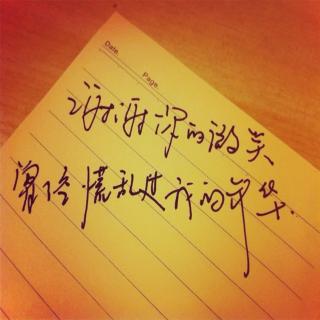 Date.
Page.
谢谢你的微笑
曾经慌乱过我的年华.